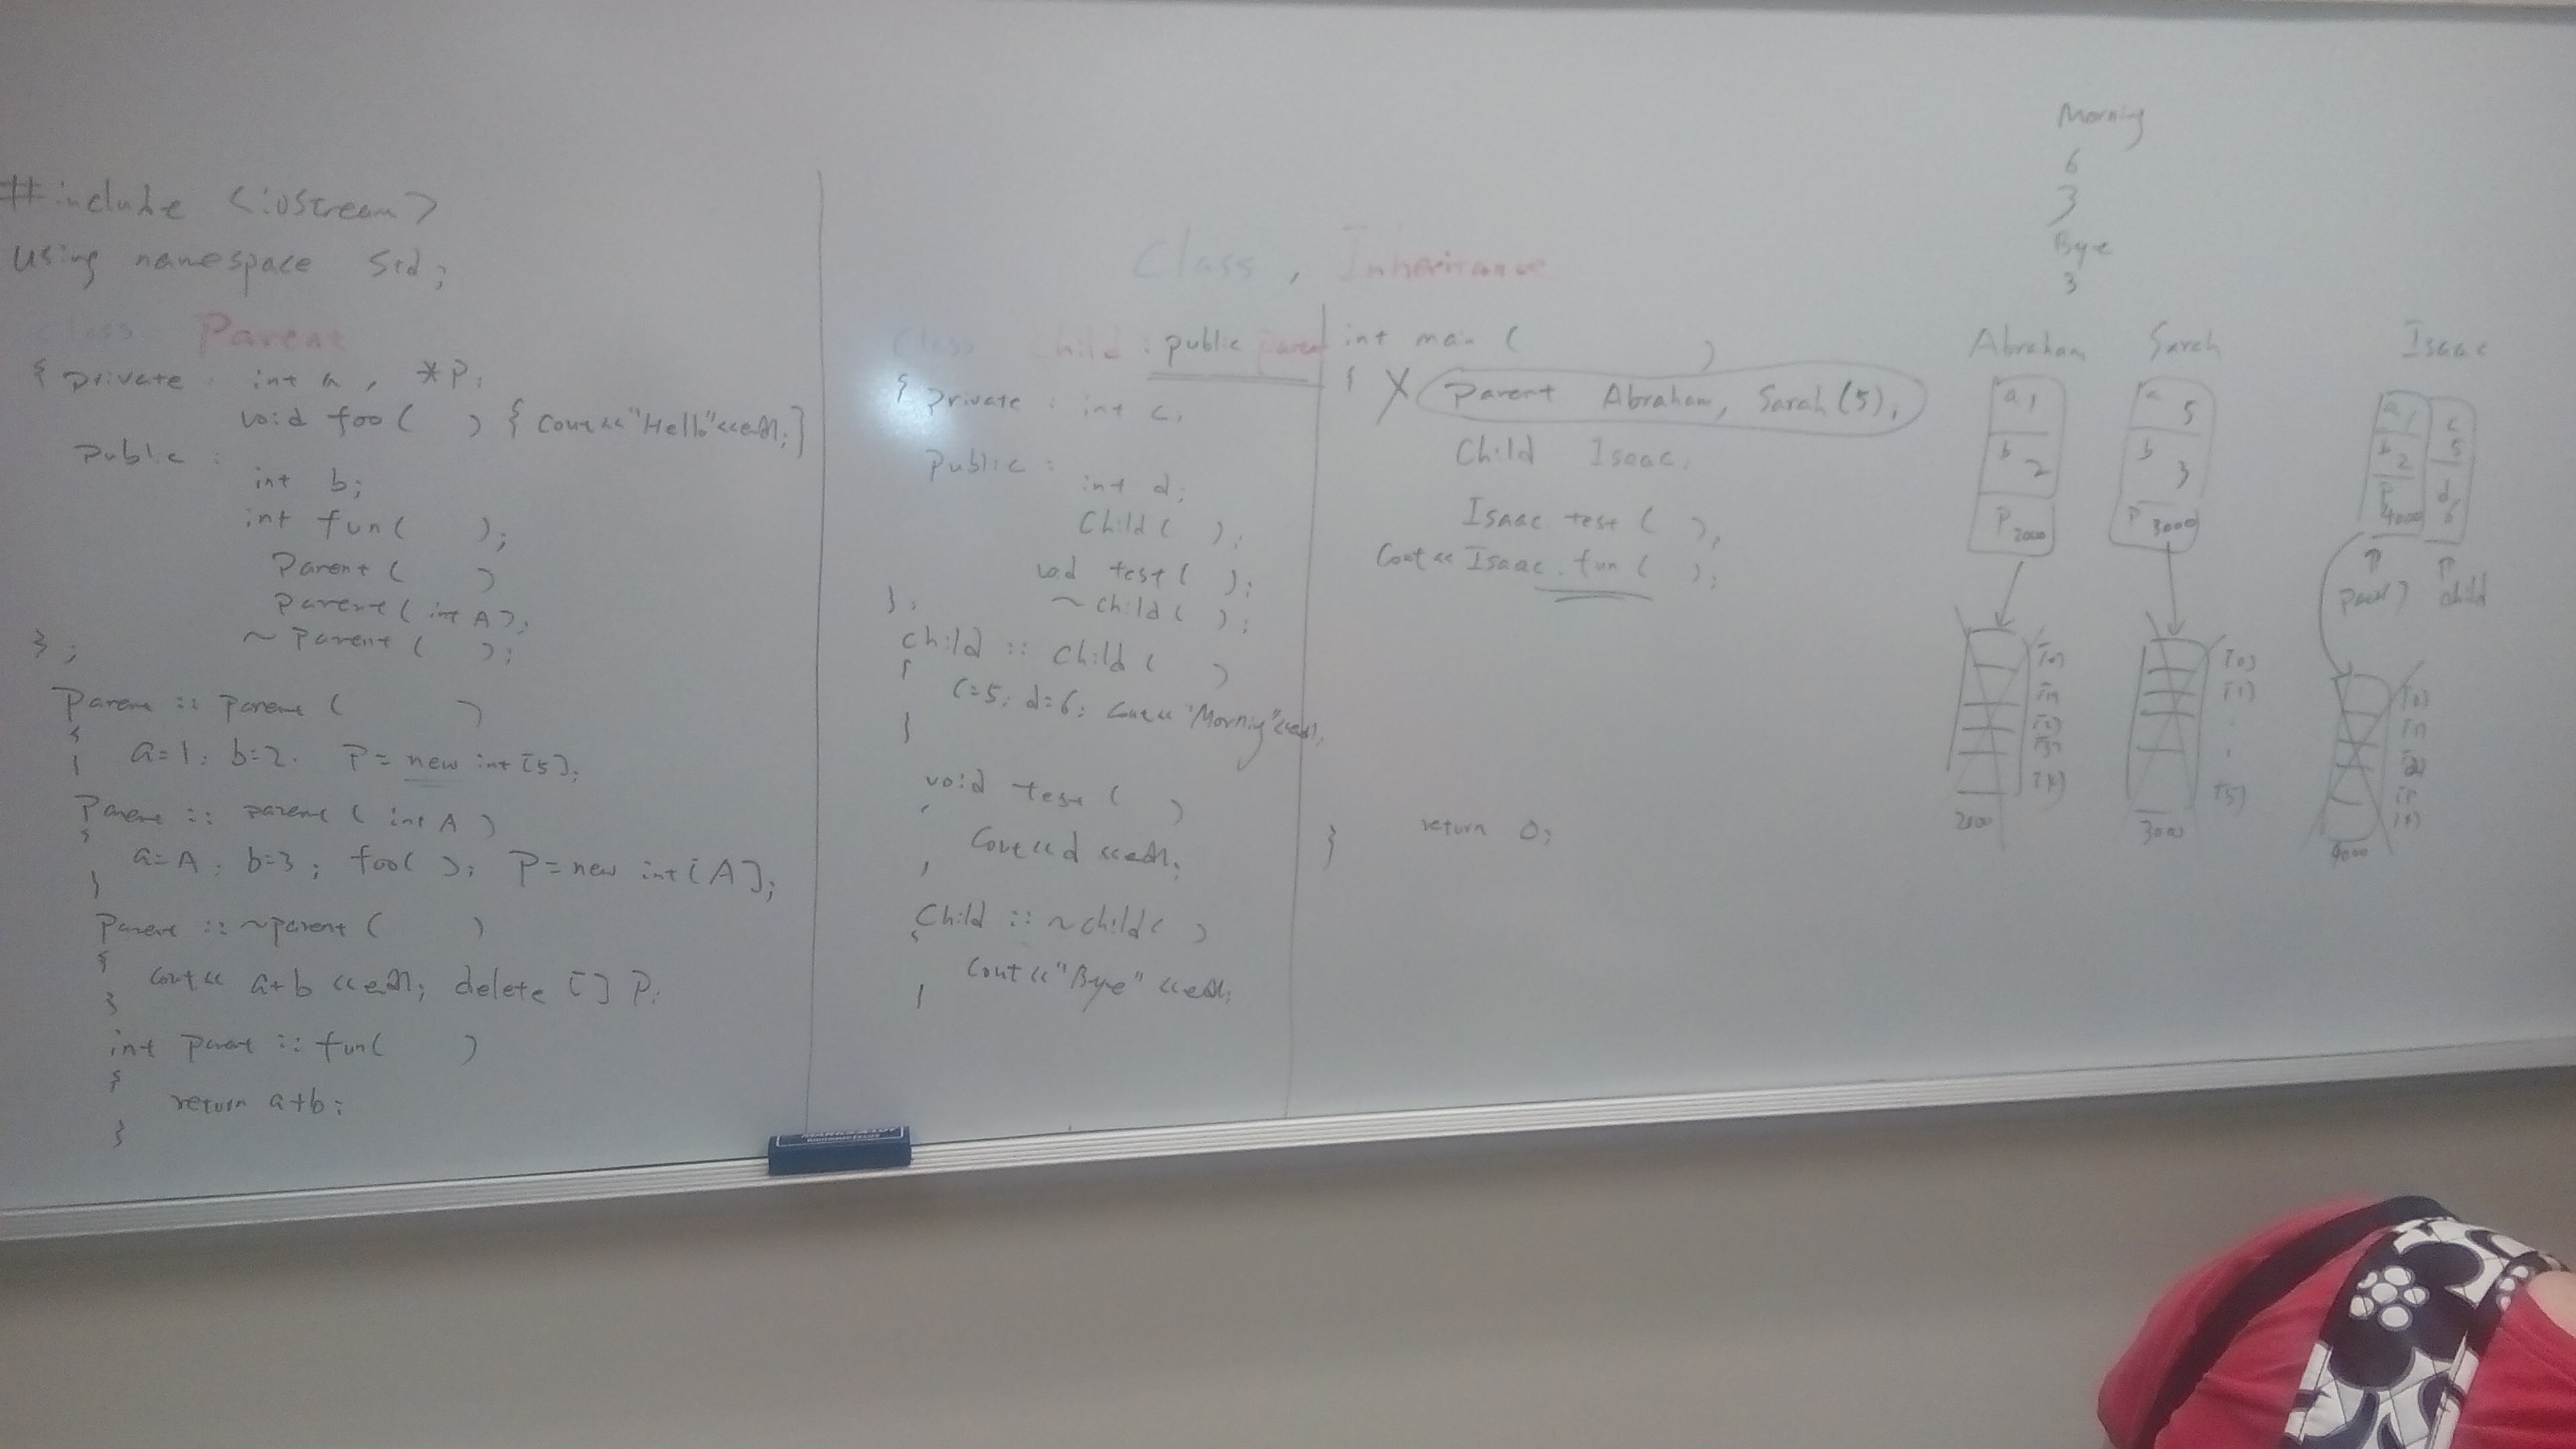 #include <iostream>
using namespace std;
class Parent
{ private : int a, *P;
void foo( ) { cout<<"Hello"<<endl;}
public :
int b;
int fun( );
Parent( )
Parent(int A);
~Parent( );
};
Parent :: Parent( )
{
a=1; b=2. P=new int[5];
}
Parent :: Parent( int A )
{
a=A; b=3; foo( ); P=new int[A];
}
Parent :: ~Parent( )
{
cout<< a+b <<endl; delete [] P;
}
int Parent :: fun( )
{
return a+b;
}
Class, Inheritance
Class Child : public Parent
{ private : int c;
public :
int d;
Child( );
void test( );
~Child( );
};
Child :: Child( )
{
c=5; d=6; cout<<"Morning"<<endl;
}
void test( )
cout<<d<<endl;
Child :: ~Child( )
{
cout<<"Bye"<<endl;
}
int main( )
{ X Parent Abraham, Sarah(5);
Child Isaac;
Isaac.test( );
cout<<Isaac.fun( );
return 0;
}
Morning
6
3
Bye
3
Abraham
a 1
b 2
P 2000
[0]
[1]
[2]
[3]
[4]
2000
Sarah
a 5
b 3
P 3000
[0]
[1]
[5]
3000
Isaac
a 1 c 5
b 2 d 6
P 4000
child
[0]
[1]
[2]
[4]
4000